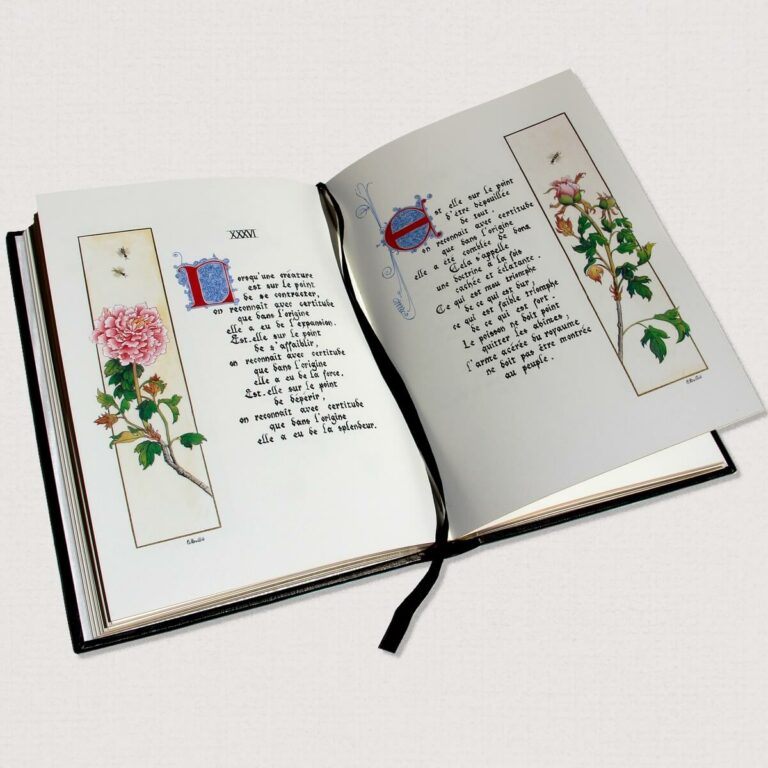 XXXVI
Lorsqu'une créature
est sur le point
de se contracter,
on reconnait avec certitude
que dans l'origine
elle a eu de l'expansion.
Est.elle sur le point
de s'affaiblir,
on reconnait avec certitude
que dans l'origine
elle a eu de la force,
Est.elle sur le point
de dépérir,
on reconnait avec certitude
que dans l'origine
elle a eu de la splendeur.
Est elle sur le point
d'être dépouillée
de tout,
on reconnait avec certitude
que dans l'origine
elle a été comblée de dons
Cela s'appelle
une doctrine à la fois
cachée et éclatante.
Ce qui est mou triomphe
de ce qui est dur,
ce qui est faible triomphe
de ce qui est fort.
Le poisson ne doit point
quitter les abîmes;
l'arme acérée du royaume
ne doit pas être montrée
au peuple.